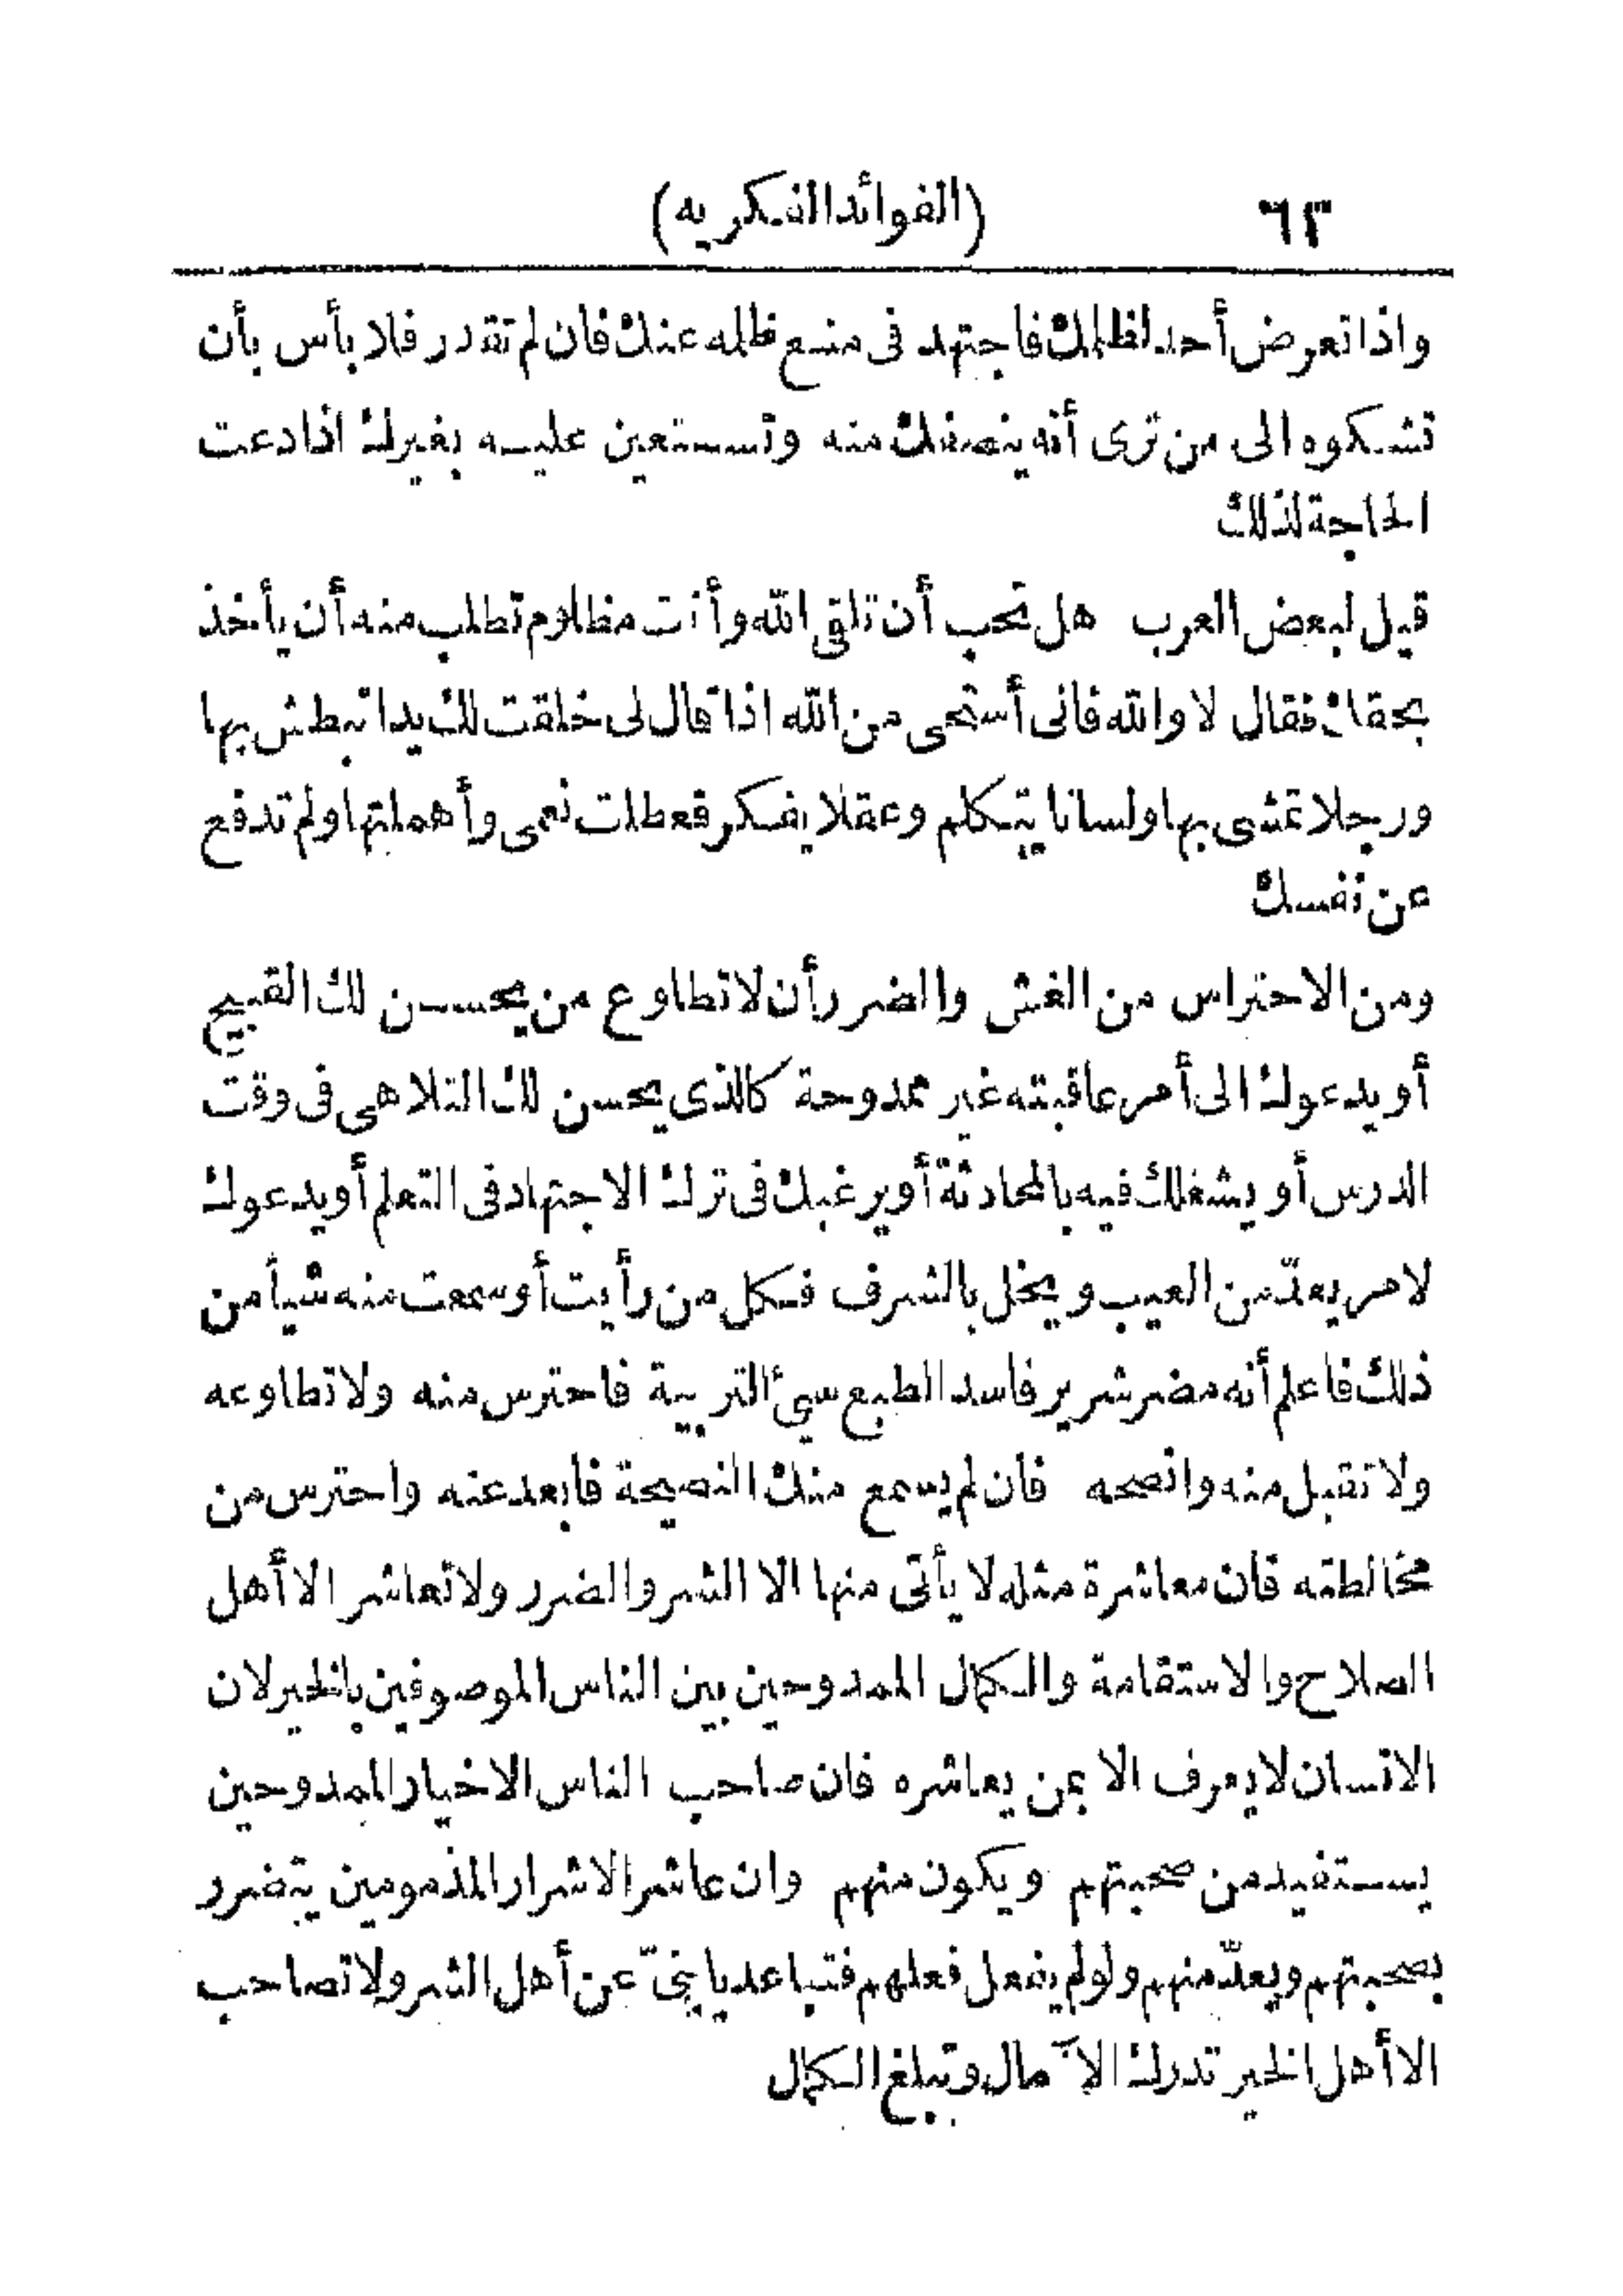 ٦٢ (الفوائد الفكريه)
واذا تعرض أحد لظلمك فاجتهد فى منع ظلمه عنك فان لم تقدر فلا بأس بأن
تشكوه الى من ترى أنه ينصفك منه وتستعين عليه بغيرك اذا دعت
الحاجة لذلك
قيل لبعض العرب هل تحب أن تلقى الله وأنت مظلوم تطلب منه أن يأخذ
بحقك فقال لا والله فانى أستحى من الله اذا قال لى خلقت لك يدا تبطش بها
ورجلا تمشى بها ولسانا يتكلم وعقلا يفكر فعطلت نعمى وأهملتها ولم تدفع
عن نفسك
ومن الاحتراس من الغش والضرر أن لا تطاوع من يحسن لك القبيح
أو يدعوك الى أمر عاقبته غير ممدوحة كالذى يحسن لك التلاهى فى وقت
الدرس أو يشغلك فيه بالمحادثة أو يرغبك فى ترك الاجتهاد فى التعلم أو يدعوك
لامر يعدّ من العيب ويخل بالشرف فكل من رأيت أو سمعت منه شيأ من
ذلك فاعلم أنه مضر شرير فاسد الطبع سيئ التربية فاحترس منه ولا تطاوعه
ولا تقبل منه وانصحه فان لم يسمع منك النصيحة فابعد عنه واحترس من
مخالطته فان معاشرة مثله لا يأتى منها الا الشر والضرر ولا تعاشر الا أهل
الصلاح والاستقامة والكمال الممدوحين بين الناس الموصوفين بالخير لان
الانسان لا يعرف الا بمن يعاشره فان صاحب الناس الاخيار الممدوحين
يستفيد من صحبتهم ويكون منهم وان عاشر الاشرار المذمومين يتضرر
بصحبتهم ويعدّ منهم ولو لم يفعل فعلهم فتباعد يا بنىّ عن أهل الشر ولا تصاحب
الا أهل الخير تدرك الآمال وتبلغ الكمال